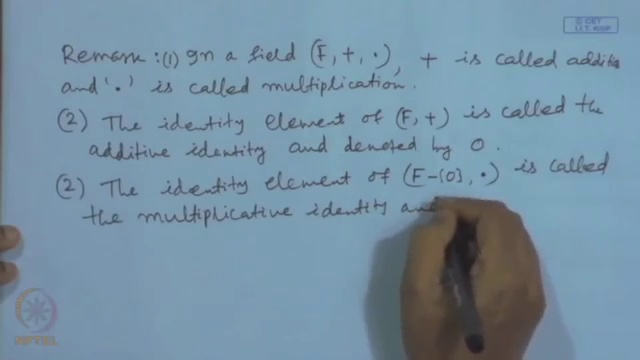 © CET
I.I.T. KGP
Remark: (1) In a field (F, +, ·), + is called additio
and '·' is called multiplication.
(2) The identity element of (F, +) is called the
additive identity and denoted by 0.
(2) The identity element of (F-{0}, ·) is called
the multiplicative identity and
NPTEL